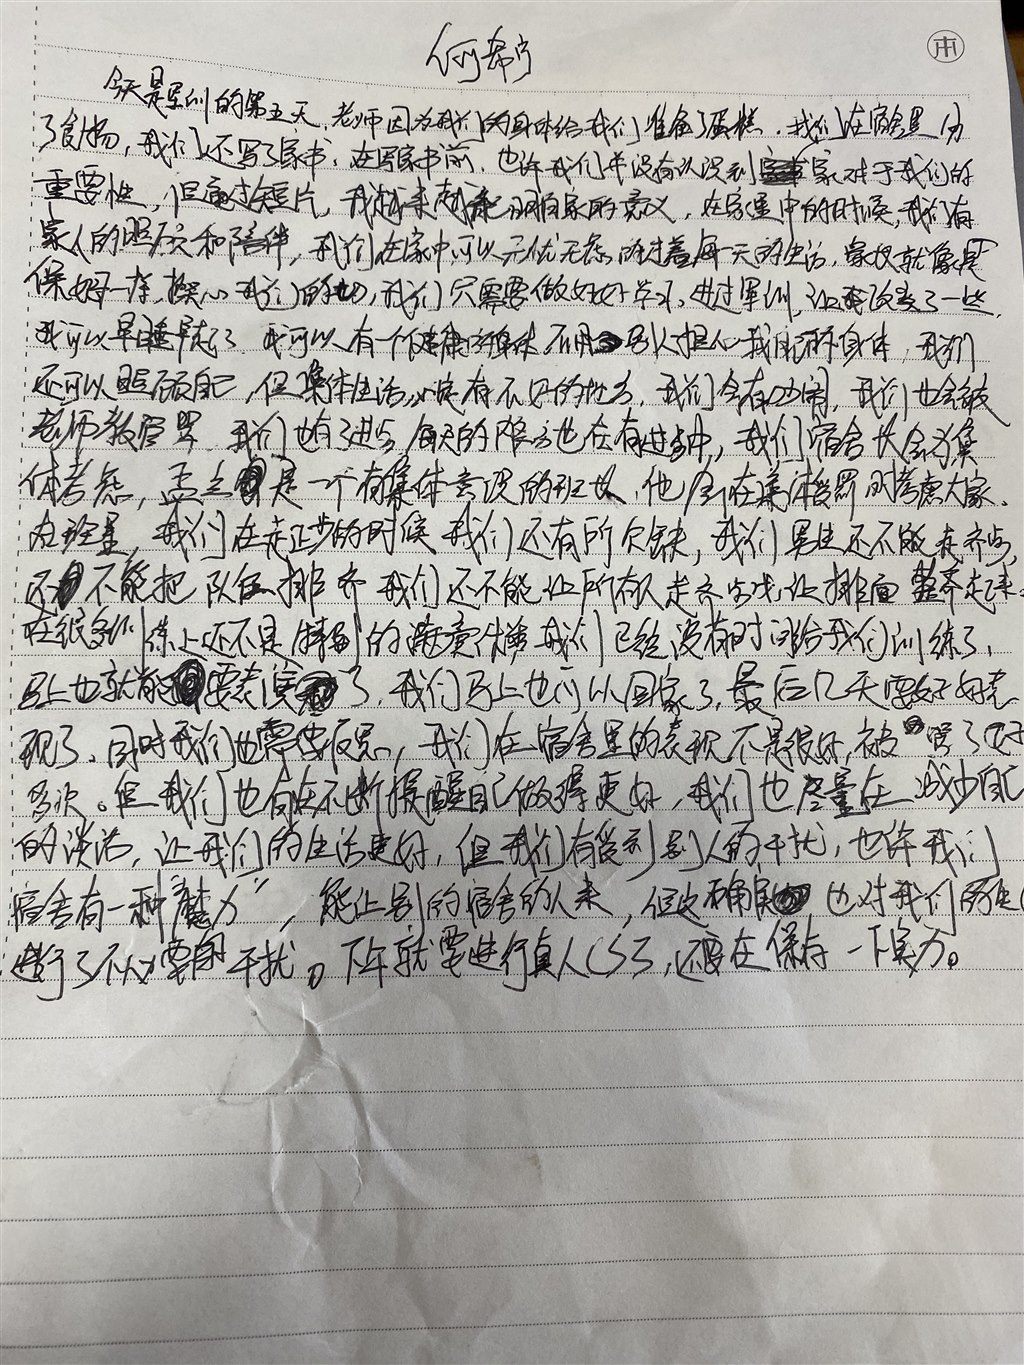 何希宁
今天是军训的第五天,老师因为我们的身体给我们准备了蛋糕,我们在宿舍里分
了食物,我们还写了家书,在写家书前,也许我们并没有认识到家对于我们的
重要性,但通过短片,我越来越明白家的意义,在家里中的时候,我们有
家人的照顾和陪伴,我们在家中可以无忧无虑的过着每一天的生活,家长就像是
保姆一样,操心我们的一切,我们只需要做好好学习,通过军训,让我改变了一些,
我可以早睡早起了,我可以有一个健康的身体,不用别人担心我的身体,我们
还可以照顾自己,但集体生活必定有不好的地方,我们会有吵闹,我们也会被
老师教官骂,我们也有了进步,每天的队列也在有进步中,我们宿舍长会为集
体考虑,孟之是一个有集体意识的班长,他会在集体受罚时考虑大家,
在班里,我们在走正步的时候我们还有所欠缺,我们男生还不能走齐步,
还不能把队伍排齐,我们还不能让所有人走齐步伐,让排面整齐起来,
在很多训练上还不是特别的满意,但我们已经没有时间给我们训练了,
马上也就要表演了,我们马上也可以回家了,最后几天要好好表
现了,同时我们也需要反思,我们在宿舍里的表现不是很好,被骂了好
多次。但我们也有在不断提醒自己做得更好,我们也尽量在减少自己
的谈话,让我们的生活更好,但我们有受到别人的干扰,也许我们
宿舍有一种“魔力”,能让别的宿舍的人来,但这确实也对我们的
进行了不必要的干扰。下午就要进行真人CS了,还要在保存一下实力。